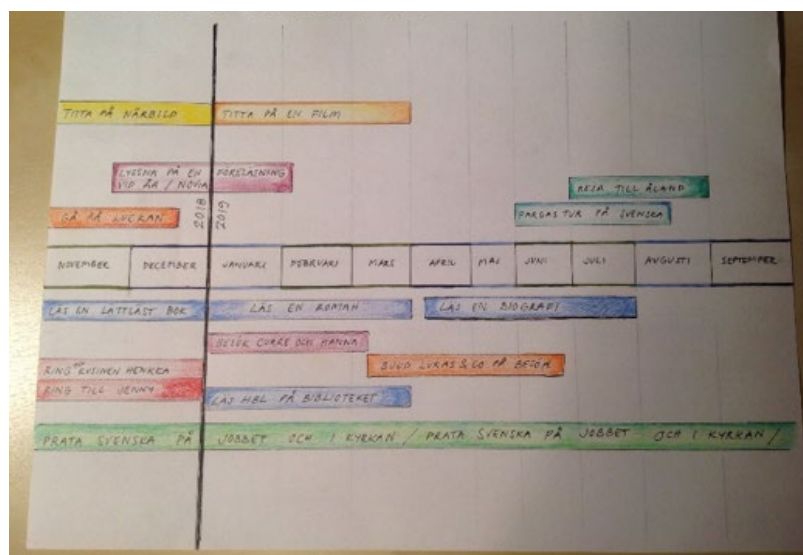 TITTA PÅ NÄRBILD
TITTA PÅ EN FILM
LYSSNA PÅ EN FÖRELÄSNING
VID ÅA / NOVIA
RESA TILL ÅLAND
PARGAS TUR PÅ SVENSKA
GÅ PÅ LUCKAN
2018
2019
NOVEMBER
DECEMBER
JANUARI
FEBRUARI
MARS
APRIL
MAJ
JUNI
JULI
AUGUSTI
SEPTEMBER
LÄS EN LÄTTLÄST BOK
LÄS EN ROMAN
LÄS EN BIOGRAFI
BESÖK CURRE OCH HANNA
BJUD LUKAS & CO PÅ BESÖK
RING KUSINEN HENKKA
RING TILL JENNY
LÄS HBL PÅ BIBLIOTEKET
PRATA SVENSKA PÅ JOBBET OCH I KYRKAN / PRATA SVENSKA PÅ JOBBET OCH I KYRKAN /